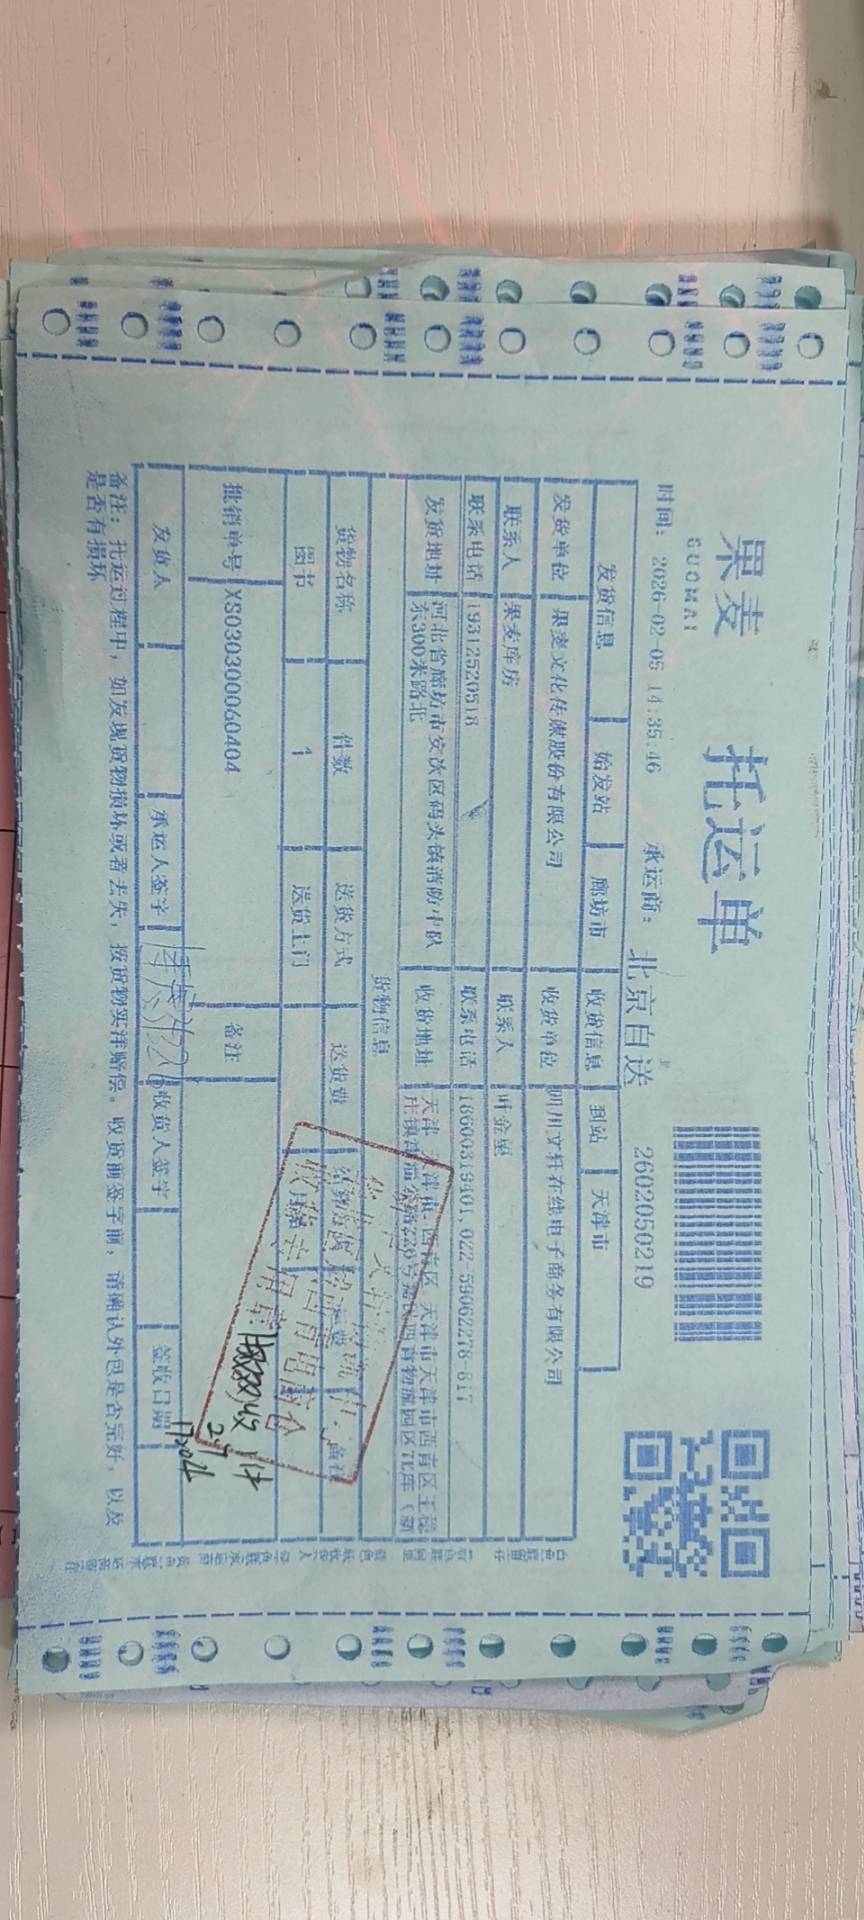 果麦
GUOMAI
托运单
时间: 2026-02-05 14:35:46 承运商: 北京自送 2602050219
发货信息 始发站 廊坊市 收货信息 到站 天津市
发货单位 果麦文化传媒股份有限公司 收货单位 四川文轩在线电子商务有限公司
联系人 果麦库房 联系人 叶金星
联系电话 19312520518 联系电话 18600319401,022-59062278-817
发货地址 河北省廊坊市安次区码头镇消防中队东300米路北 收货地址 天津 天津市 西青区 天津市天津市西青区王稳庄镇
货物信息
货物名称 件数 送货方式 送货费 备注
图书 1 送货上门 月结
批销单号 XS030300060404 备注
发货人 承运人签字 收货人签字 签收日期
备注: 托运过程中, 如发现货物损坏或者丢失, 按货物实洋赔偿。收货前签字前, 请确认外包是否完好, 以及
是否有损坏
收货专用章
实收 1件
2.7